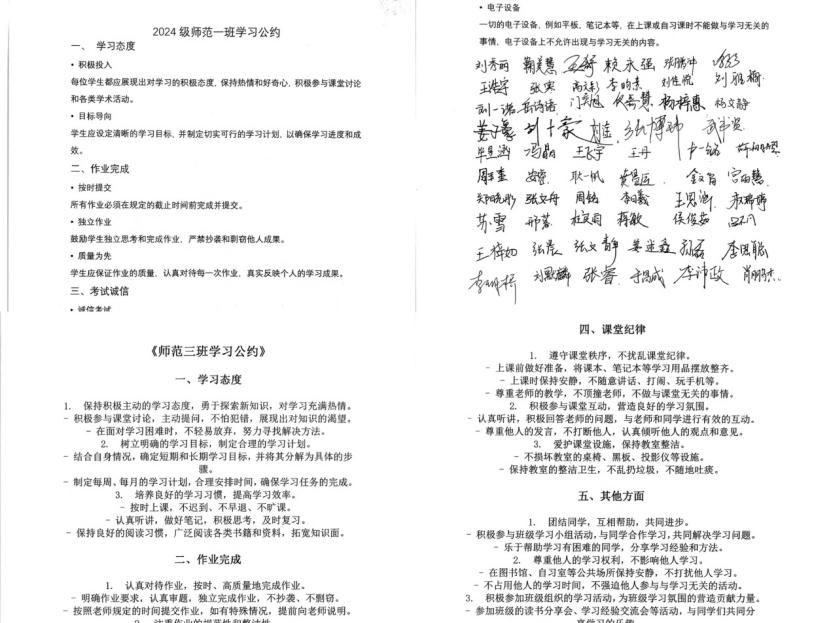 2024 级师范一班学习公约
一、 学习态度
• 积极投入
每位学生都应展现出对学习的积极态度，保持热情和好奇心，积极参与课堂讨论
和各类学术活动。
• 目标导向
学生应设定清晰的学习目标，并制定切实可行的学习计划，以确保学习进度和成
效。
二、作业完成
• 按时提交
所有作业必须在规定的截止时间前完成并提交。
• 独立作业
鼓励学生独立思考和完成作业，严禁抄袭和剽窃他人成果。
• 质量为先
学生应保证作业的质量，认真对待每一次作业，真实反映个人的学习成果。
三、考试诚信
• 诚信考试
• 电子设备
一切的电子设备，例如平板，笔记本等，在上课或自习课时不能做与学习无关的
事情，电子设备上不允许出现与学习无关的内容。
刘秀丽 鞠美慧 赖永强
张寅 刘雅榆
杨文静
刘十豪 张博
冯晶 王飞宇 王丹
安蕾 耿一帆
张文舟 周铭 王思涵
苏雪 邢蓉 侯俊茹
王梓如 张晨 张文静 李恩聪
刘默麟 张睿 于昌成 李沛政
《师范三班学习公约》
一、学习态度
1. 保持积极主动的学习态度，勇于探索新知识，对学习充满热情。
- 积极参与课堂讨论，主动提问，不怕犯错，展现出对知识的渴望。
- 在面对学习困难时，不轻易放弃，努力寻找解决方法。
2. 树立明确的学习目标，制定合理的学习计划。
- 结合自身情况，确定短期和长期学习目标，并将其分解为具体的步
骤。
- 制定每周、每月的学习计划，合理安排时间，确保学习任务的完成。
3. 培养良好的学习习惯，提高学习效率。
- 按时上课，不迟到、不早退、不旷课。
- 认真听讲，做好笔记，积极思考，及时复习。
- 保持良好的阅读习惯，广泛阅读各类书籍和资料，拓宽知识面。
二、作业完成
1. 认真对待作业，按时、高质量地完成作业。
- 明确作业要求，认真审题，独立完成作业，不抄袭、不剽窃。
- 按照老师规定的时间提交作业，如有特殊情况，提前向老师说明。
2. 注重作业的规范性和整洁性。
四、课堂纪律
1. 遵守课堂秩序，不扰乱课堂纪律。
- 上课前做好准备，将课本、笔记本等学习用品摆放整齐。
- 上课时保持安静，不随意讲话、打闹、玩手机等。
- 尊重老师的教学，不顶撞老师，不做与课堂无关的事情。
2. 积极参与课堂互动，营造良好的学习氛围。
- 认真听讲，积极回答老师的问题，与老师和同学进行有效的互动。
- 尊重他人的发言，不打断他人，认真倾听他人的观点和意见。
3. 爱护课堂设施，保持教室整洁。
- 不损坏教室的桌椅、黑板、投影仪等设施。
- 保持教室的整洁卫生，不乱扔垃圾，不随地吐痰。
五、其他方面
1. 团结同学，互相帮助，共同进步。
- 积极参与班级学习小组活动，与同学合作学习，共同解决学习问题。
- 乐于帮助学习有困难的同学，分享学习经验和方法。
2. 尊重他人的学习权利，不影响他人学习。
- 在图书馆、自习室等公共场所保持安静，不打扰他人学习。
- 不占用他人的学习时间，不强迫他人参与与学习无关的活动。
3. 积极参加班级组织的学习活动，为班级学习氛围的营造贡献力量。
- 参加班级的读书分享会、学习经验交流会等活动，与同学们共同分
享学习的乐趣